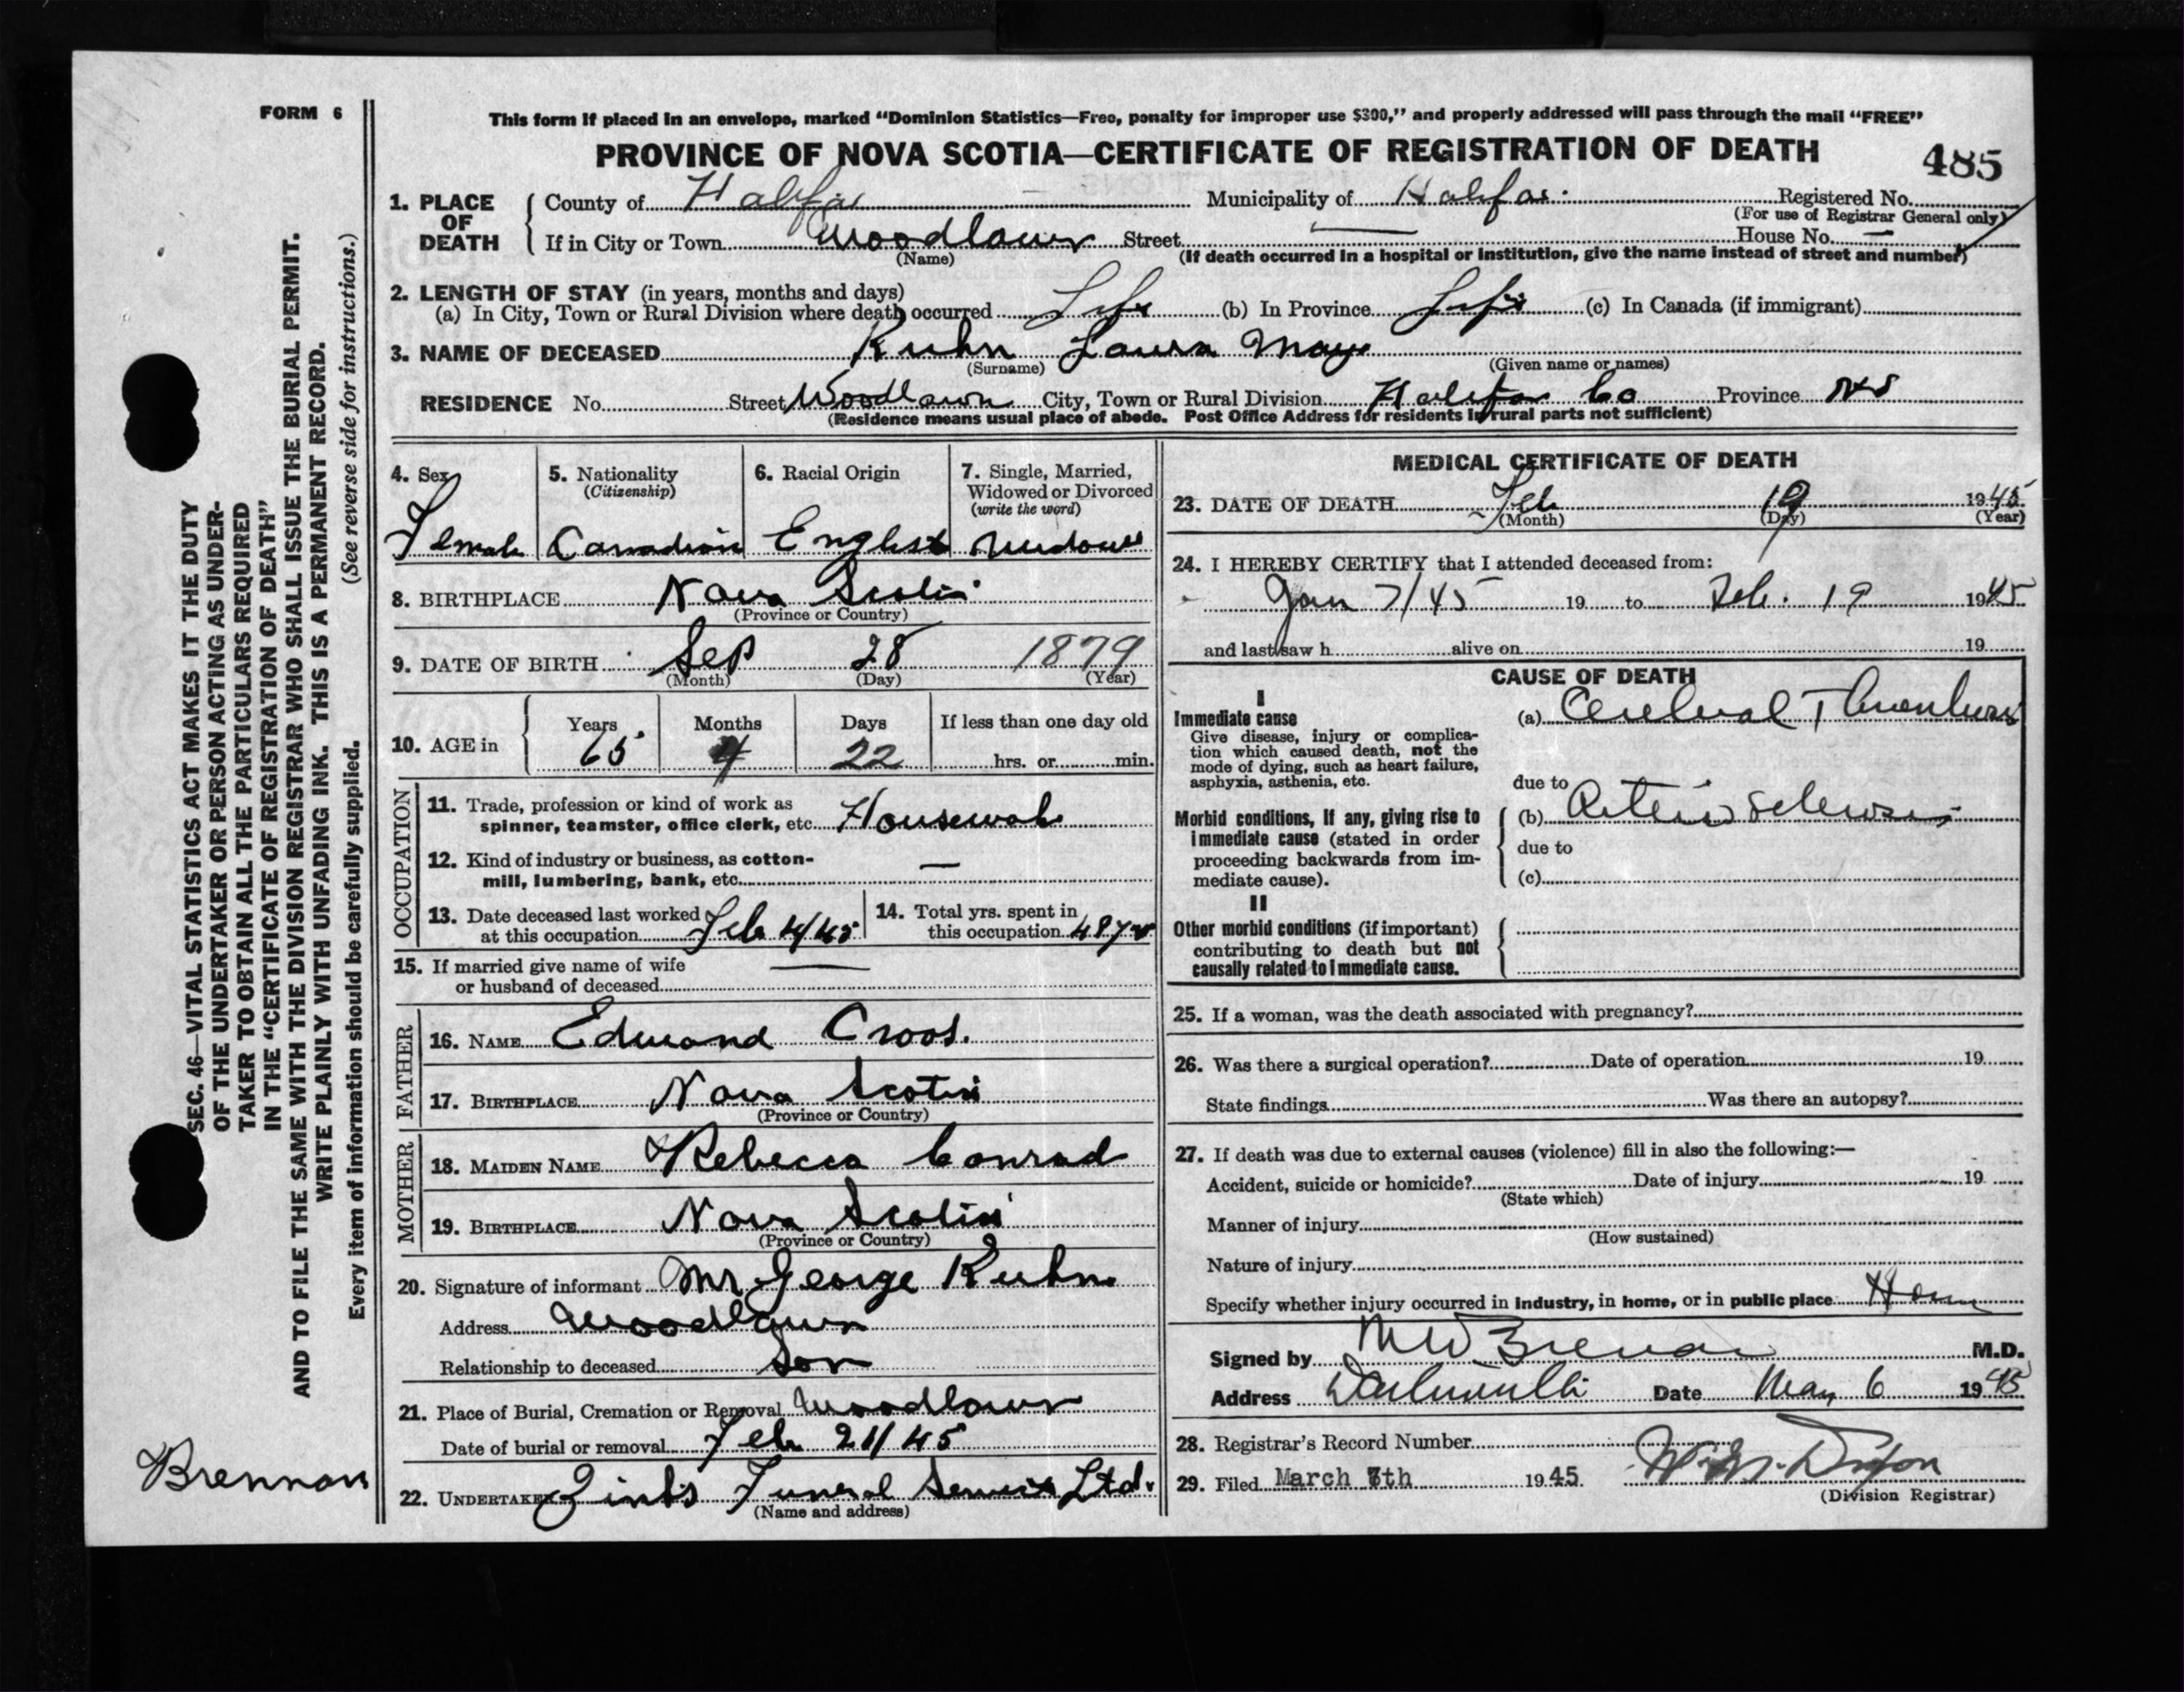 FORM 6
This form if placed in an envelope, marked “Dominion Statistics—Free, penalty for improper use $300,” and properly addressed will pass through the mail “FREE”
PROVINCE OF NOVA SCOTIA—CERTIFICATE OF REGISTRATION OF DEATH
485
1. PLACE OF DEATH
County of Halifax Municipality of Halifax Registered No.
(For use of Registrar General only)
If in City or Town Woodlawn Street — House No. —
(Name) (If death occurred in a hospital or institution, give the name instead of street and number)
2. LENGTH OF STAY (in years, months and days)
(a) In City, Town or Rural Division where death occurred Life (b) In Province Life (c) In Canada (if immigrant)
3. NAME OF DECEASED Kuhn Laura May
(Surname) (Given name or names)
RESIDENCE No. Street Woodlawn City, Town or Rural Division Halifax Co Province NS
(Residence means usual place of abode. Post Office Address for residents in rural parts not sufficient)
4. Sex
Female
5. Nationality
(Citizenship)
Canadian
6. Racial Origin
English
7. Single, Married,
Widowed or Divorced
(write the word)
Widow
8. BIRTHPLACE Nova Scotia
(Province or Country)
9. DATE OF BIRTH Sep 28 1879
(Month) (Day) (Year)
10. AGE in
Years Months Days If less than one day old
65 4 22 hrs. or min.
OCCUPATION
11. Trade, profession or kind of work as
spinner, teamster, office clerk, etc.
12. Kind of industry or business, as cotton-
mill, lumbering, bank, etc. —
13. Date deceased last worked
at this occupation Feb 4/45
14. Total yrs. spent in
this occupation 48 yr
15. If married give name of wife
or husband of deceased —
FATHER
16. NAME Edward
17. BIRTHPLACE Nova Scotia
(Province or Country)
MOTHER
18. MAIDEN NAME Rebecca Conrad
19. BIRTHPLACE Nova Scotia
(Province or Country)
20. Signature of informant Mr George Kuhn
Address Woodlawn
Relationship to deceased Son
21. Place of Burial, Cremation or Removal Woodlawn
Date of burial or removal Feb 21/45
22. UNDERTAKER Zink's Funeral Service Ltd.
(Name and address)
MEDICAL CERTIFICATE OF DEATH
23. DATE OF DEATH Feb 19 1945
(Month) (Day) (Year)
24. I HEREBY CERTIFY that I attended deceased from:
Jan 7/45 19 to Feb. 19 1945
and last saw h alive on 19
CAUSE OF DEATH
I
Immediate cause
Give disease, injury or complica-
tion which caused death, not the
mode of dying, such as heart failure,
asphyxia, asthenia, etc.
(a) Cerebral Thrombosis
due to
Morbid conditions, if any, giving rise to
immediate cause (stated in order
proceeding backwards from im-
mediate cause).
(b) Arteriosclerosis
due to
(c)
II
Other morbid conditions (if important)
contributing to death but not
causally related to immediate cause.
25. If a woman, was the death associated with pregnancy?
26. Was there a surgical operation? Date of operation 19
State findings Was there an autopsy?
27. If death was due to external causes (violence) fill in also the following:—
Accident, suicide or homicide? Date of injury 19
(State which)
Manner of injury
(How sustained)
Nature of injury
Specify whether injury occurred in industry, in home, or in public place Home
Signed by M W Brennan M.D.
Address Dartmouth Date Mar 6 1945
28. Registrar's Record Number
29. Filed March 7th 1945
(Division Registrar)
SEC. 46—VITAL STATISTICS ACT MAKES IT THE DUTY
OF THE UNDERTAKER OR PERSON ACTING AS UNDER-
TAKER TO OBTAIN ALL THE PARTICULARS REQUIRED
IN THE “CERTIFICATE OF REGISTRATION OF DEATH”
AND TO FILE THE SAME WITH THE DIVISION REGISTRAR WHO SHALL ISSUE THE BURIAL PERMIT.
WRITE PLAINLY WITH UNFADING INK. THIS IS A PERMANENT RECORD.
Every item of information should be carefully supplied. (See reverse side for instructions.)
Brennan